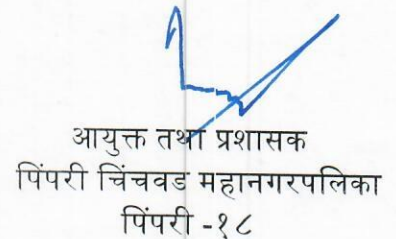 आयुक्त तथा प्रशासक
पिंपरी चिंचवड महानगरपलिका
पिंपरी -१८